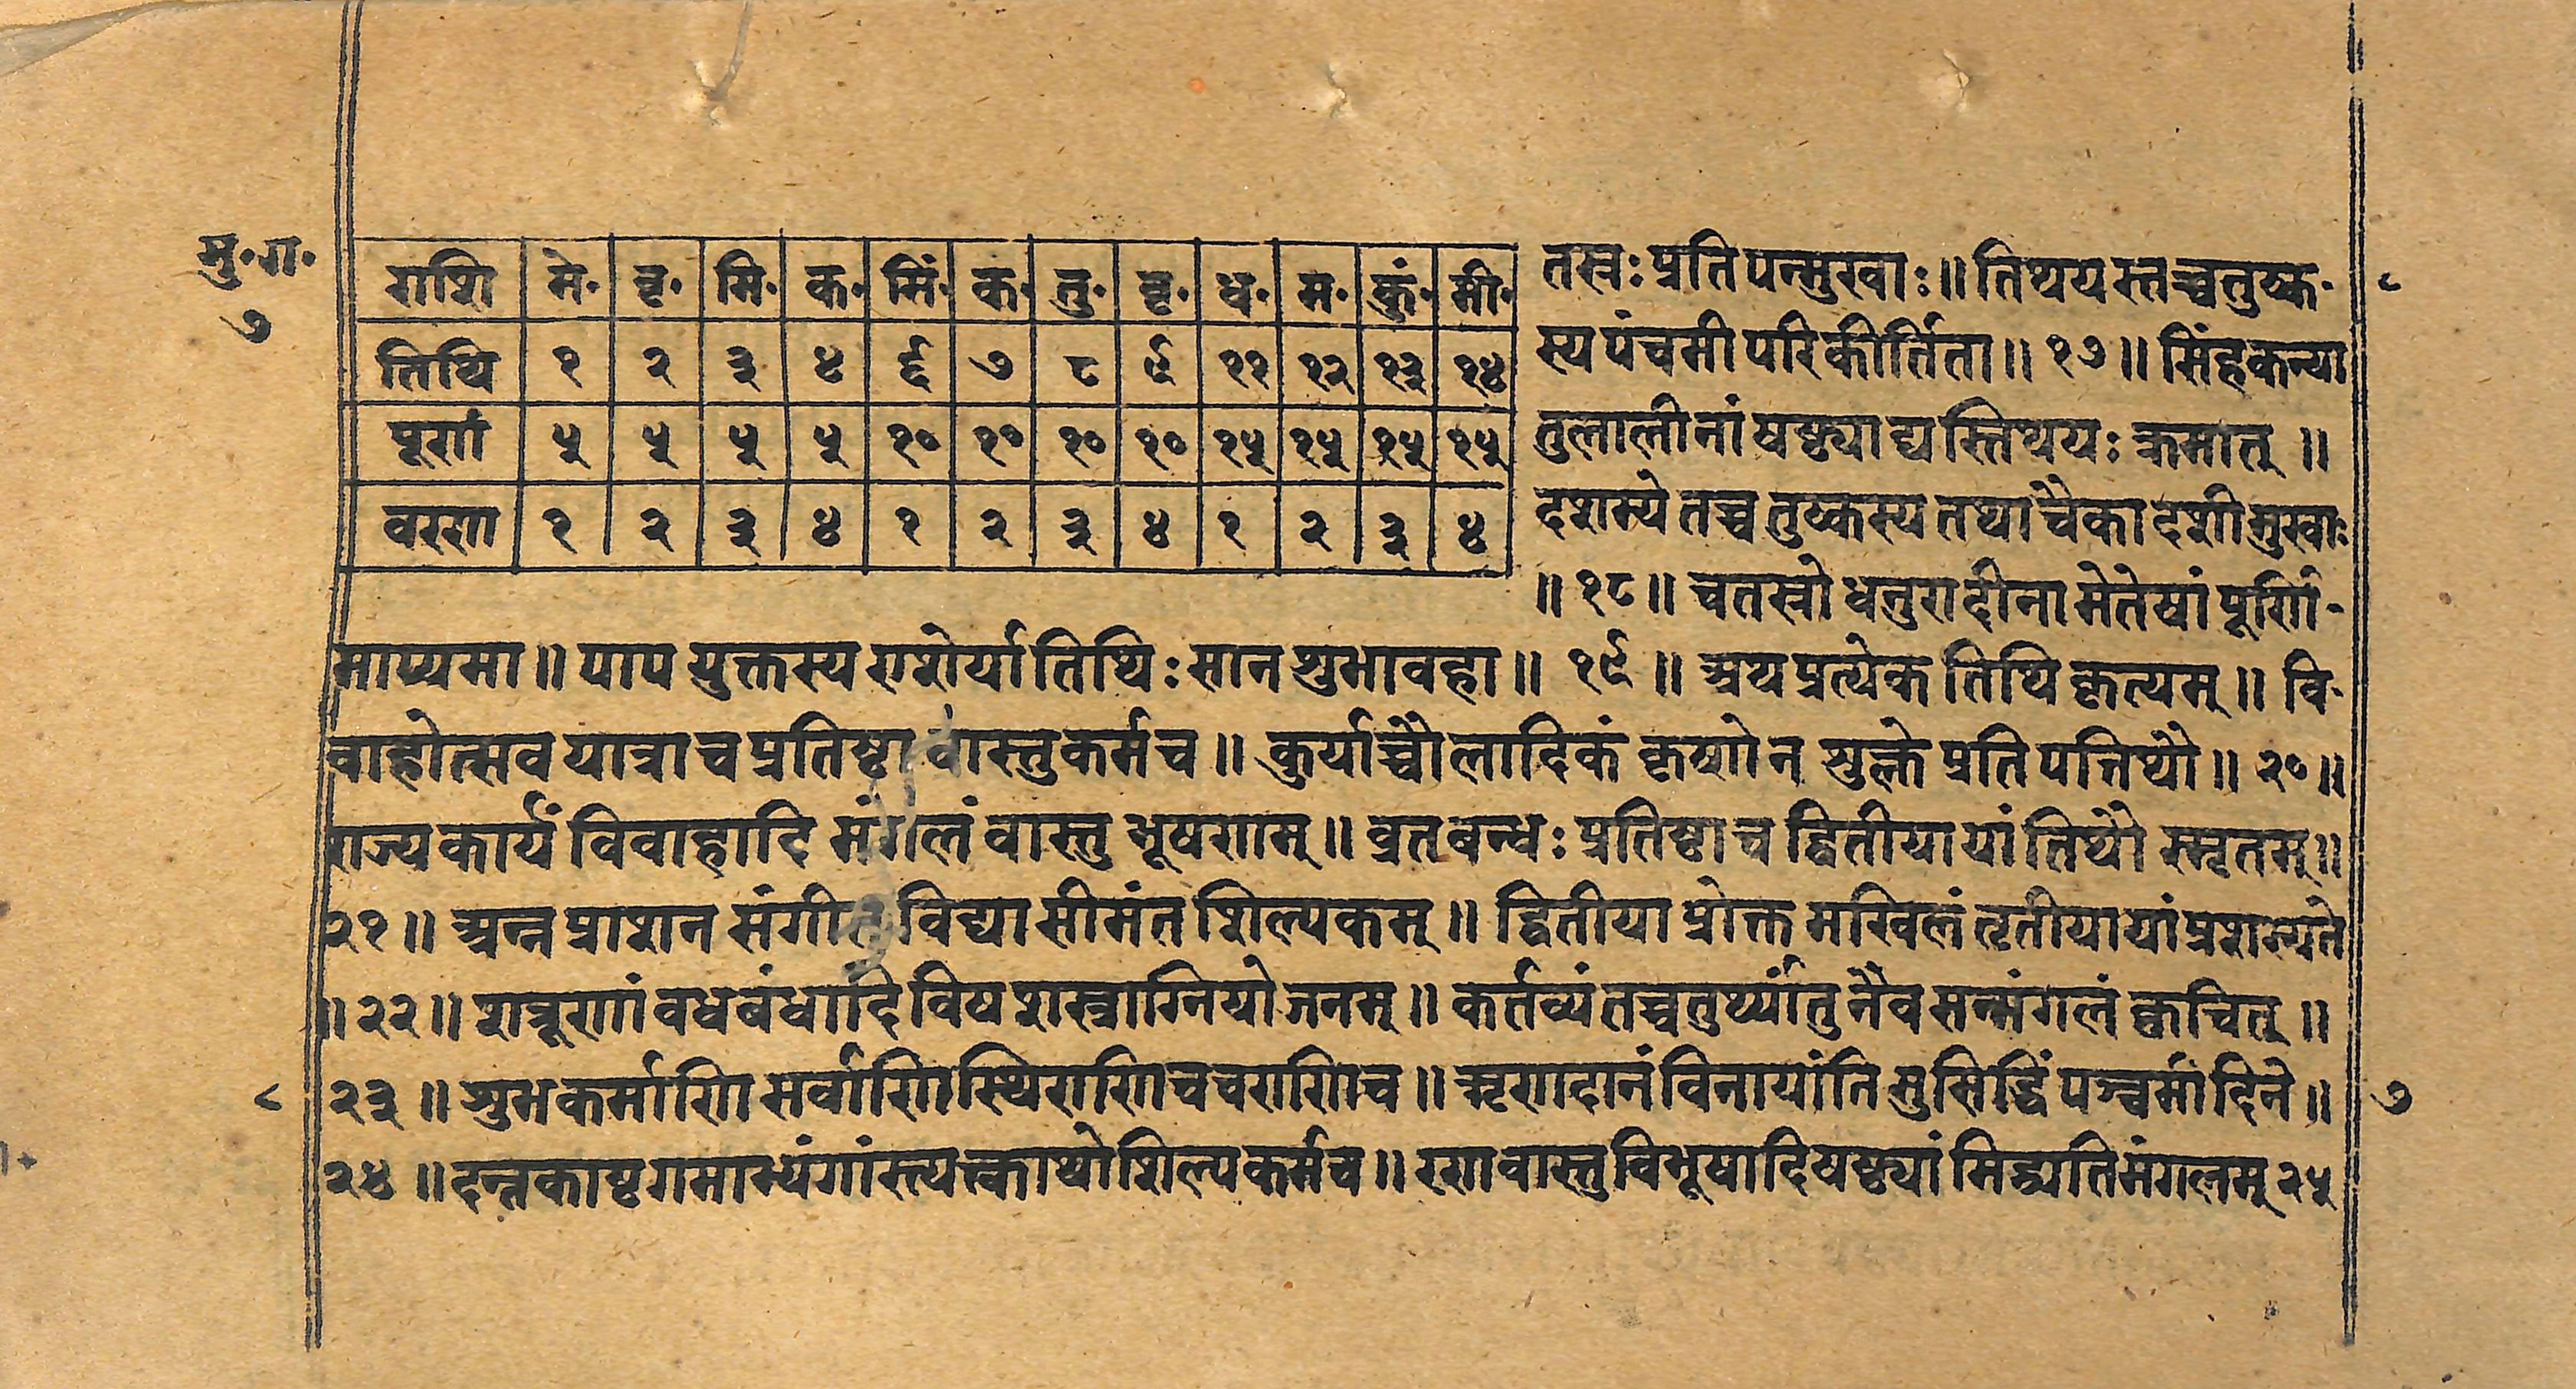 मु॰ग॰
७
राशि मे॰ वृ॰ मि॰ क॰ सिं॰ क॰ तु॰ वृ॰ ध॰ म॰ कुं॰ मी॰
तिथि १ २ ३ ४ ६ ७ ८ ९ ११ १२ १३ १४
पूर्णा ५ ५ ५ ५ १० १० १० १० १५ १५ १५ १५
चरण १ २ ३ ४ १ २ ३ ४ १ २ ३ ४
तस्त्रः प्रतिपन्मुखाः ॥ तिथयस्तच्चतुष्क- ८
स्य पंचमी परिकीर्तिता ॥ १७ ॥ सिंहकन्या
तुलालीनां षष्ठ्याद्यस्तिथयः क्रमात् ॥
दशम्येतच्चतुष्कस्य तथा चैकादशीमुखाः
॥ १८ ॥ चतस्त्रो धनुरादीनामेतेषां पूर्णि-
माप्यमा ॥ पापयुक्तस्य राशेर्या तिथिः सा न शुभावहा ॥ १९ ॥ अथ प्रत्येक तिथि कृत्यम् ॥ वि-
वाहोत्सव यात्रा च प्रतिष्ठा वास्तुकर्म च ॥ कुर्याच्चौलादिकं कृष्णे न शुक्ले प्रतिपत्तिथौ ॥ २० ॥
राज्यकार्यं विवाहादि मंगलं वास्तु भूषणम् ॥ व्रतबन्धः प्रतिष्ठा च द्वितीयायां तिथौ स्मृतम् ॥
२१ ॥ अन्नप्राशन संगीत विद्या सीमंत शिल्पकम् ॥ द्वितीया प्रोक्तमखिलं तृतीयायां प्रशस्यते
॥ २२ ॥ शत्रूणां वधबंधादि विष शस्त्राग्नियोजनम् ॥ कर्तव्यं तच्चतुर्थ्यां तु नैव सन्मंगलं क्वचित् ॥
८ २३ ॥ शुभकर्माणि सर्वाणि स्थिराणि च चराणि च ॥ ऋणदानं विना यांति सुसिद्धिं पञ्चमी दिने ॥ ७
२४ ॥ दन्तकाष्ठगमाभ्यंगांस्त्यक्त्वाथो शिल्पकर्म च ॥ रणवास्तुविभूषादि षष्ठ्यां सिद्ध्यति मंगलम् २५